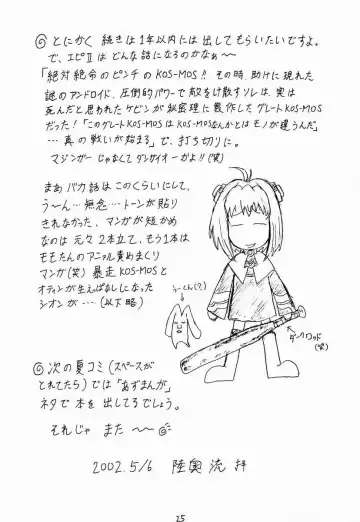 ◎ とにかく 続きは1年以内には出してもらいたいですよ。
で、エピⅡは どんな話になるのかなぁ〜
「絶対絶命のピンチのKOS-MOS! その時、助けに現れた
謎のアンドロイド、圧倒的パワーで敵をけ散すソレは、実は
死んだと思われたケビンが秘密理に製作したグレートKOS-MOS
だった!「このグレートKOS-MOSはKOS-MOSなんかとはモノが違うんだ」
…真の戦いが始まる」で、打ち切りに。
マジンガーじゃなくてダンガイオーかよ!!(笑)
まぁバカ話はこのくらいにして、
う〜ん…無念…トーンが貼り
きれなかった、マンガが短かめ
なのは元々2本立で、もう1本は
モモたんのアニャル責めまくり
マンガ(笑) 暴走KOS-MOSと
オティンが生えっぱなしになった
シオンが…(以下略)
うーくん(?)
バントロッド
(笑)
◎ 次の夏コミ(スペースが
とれてたら)では「あずまんが」
ネタで本を出してるでしょう。
それじゃ また 〜〜◎
2002.5/6 陸奥 流 拝
25